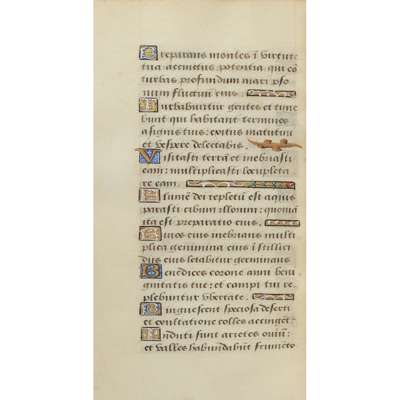 Preparans montes ĩ virtute
tua accinctus potentia qui cõ
turbas profundum mari sso
num fluctuũ eius
Turbabuntur gentes et time
bunt qui habitant terminos
a signis tuis: exitus matutini
et vespere delectabis.
Visitasti terrã et inebriasti
eam: multiplicasti locupleta
re eam.
Flumẽ dei repletũ est aquis
parasti cibum illorum: quoniã
ita est preparatio eius.
Rivos eius inebrians multi
plica genimina eius ĩ stillici
diis eius letabitur germinans
Benedices corone anni beni
gnitatis tue: et campi tui re
plebuntur ubertate.
Pinguescent speciosa deserti
et exultatione colles accingẽt͛
Induti sunt arietes oviũ:
et valles habundabũt frumẽto